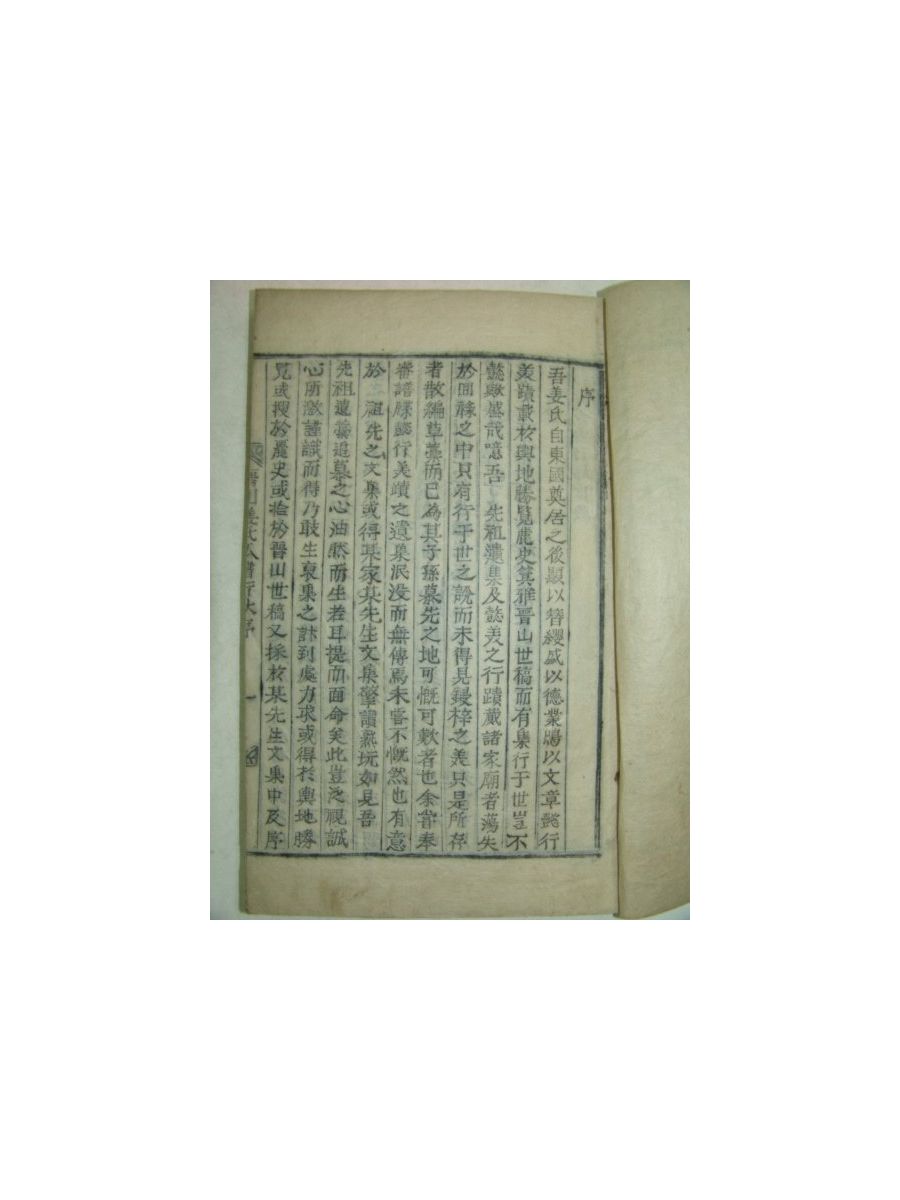 序
吾姜氏自東國奠居之後顯以簪纓盛以德業鳴以文章懿行
美蹟載於輿地勝覧麗史箕雅晋山世稿而有集行于世豈不
懿歟盛哉噫吾 先祖遺集及懿美之行蹟藏諸家廟者蕩失
於回祿之中只有行于世之說而未得見鋟梓之美只是所存
者散編草藁而已為其子孫慕先之地可慨可歎者也余嘗奉
審譜牒懿行美蹟之遺巢泯没而無傳焉未嘗不慨然也有意
於 祖先之文集或得某家某先生文集擎讀熱玩如見吾
先祖遺 追慕之心油然而生若耳提而面命矣此豈泛視誠
心所激謹識而得乃敢生裒集之計到處力求或得於輿地勝
覧或搜於麗史或捡於晋山世稿又採於某先生文集中及序
姜氏 譜行 序
一